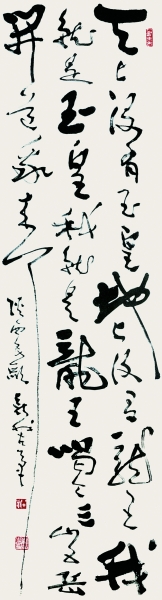 天上没有玉皇地上没有龍王我
就是玉皇我就是龍王喝令三山五岳
開道我来了